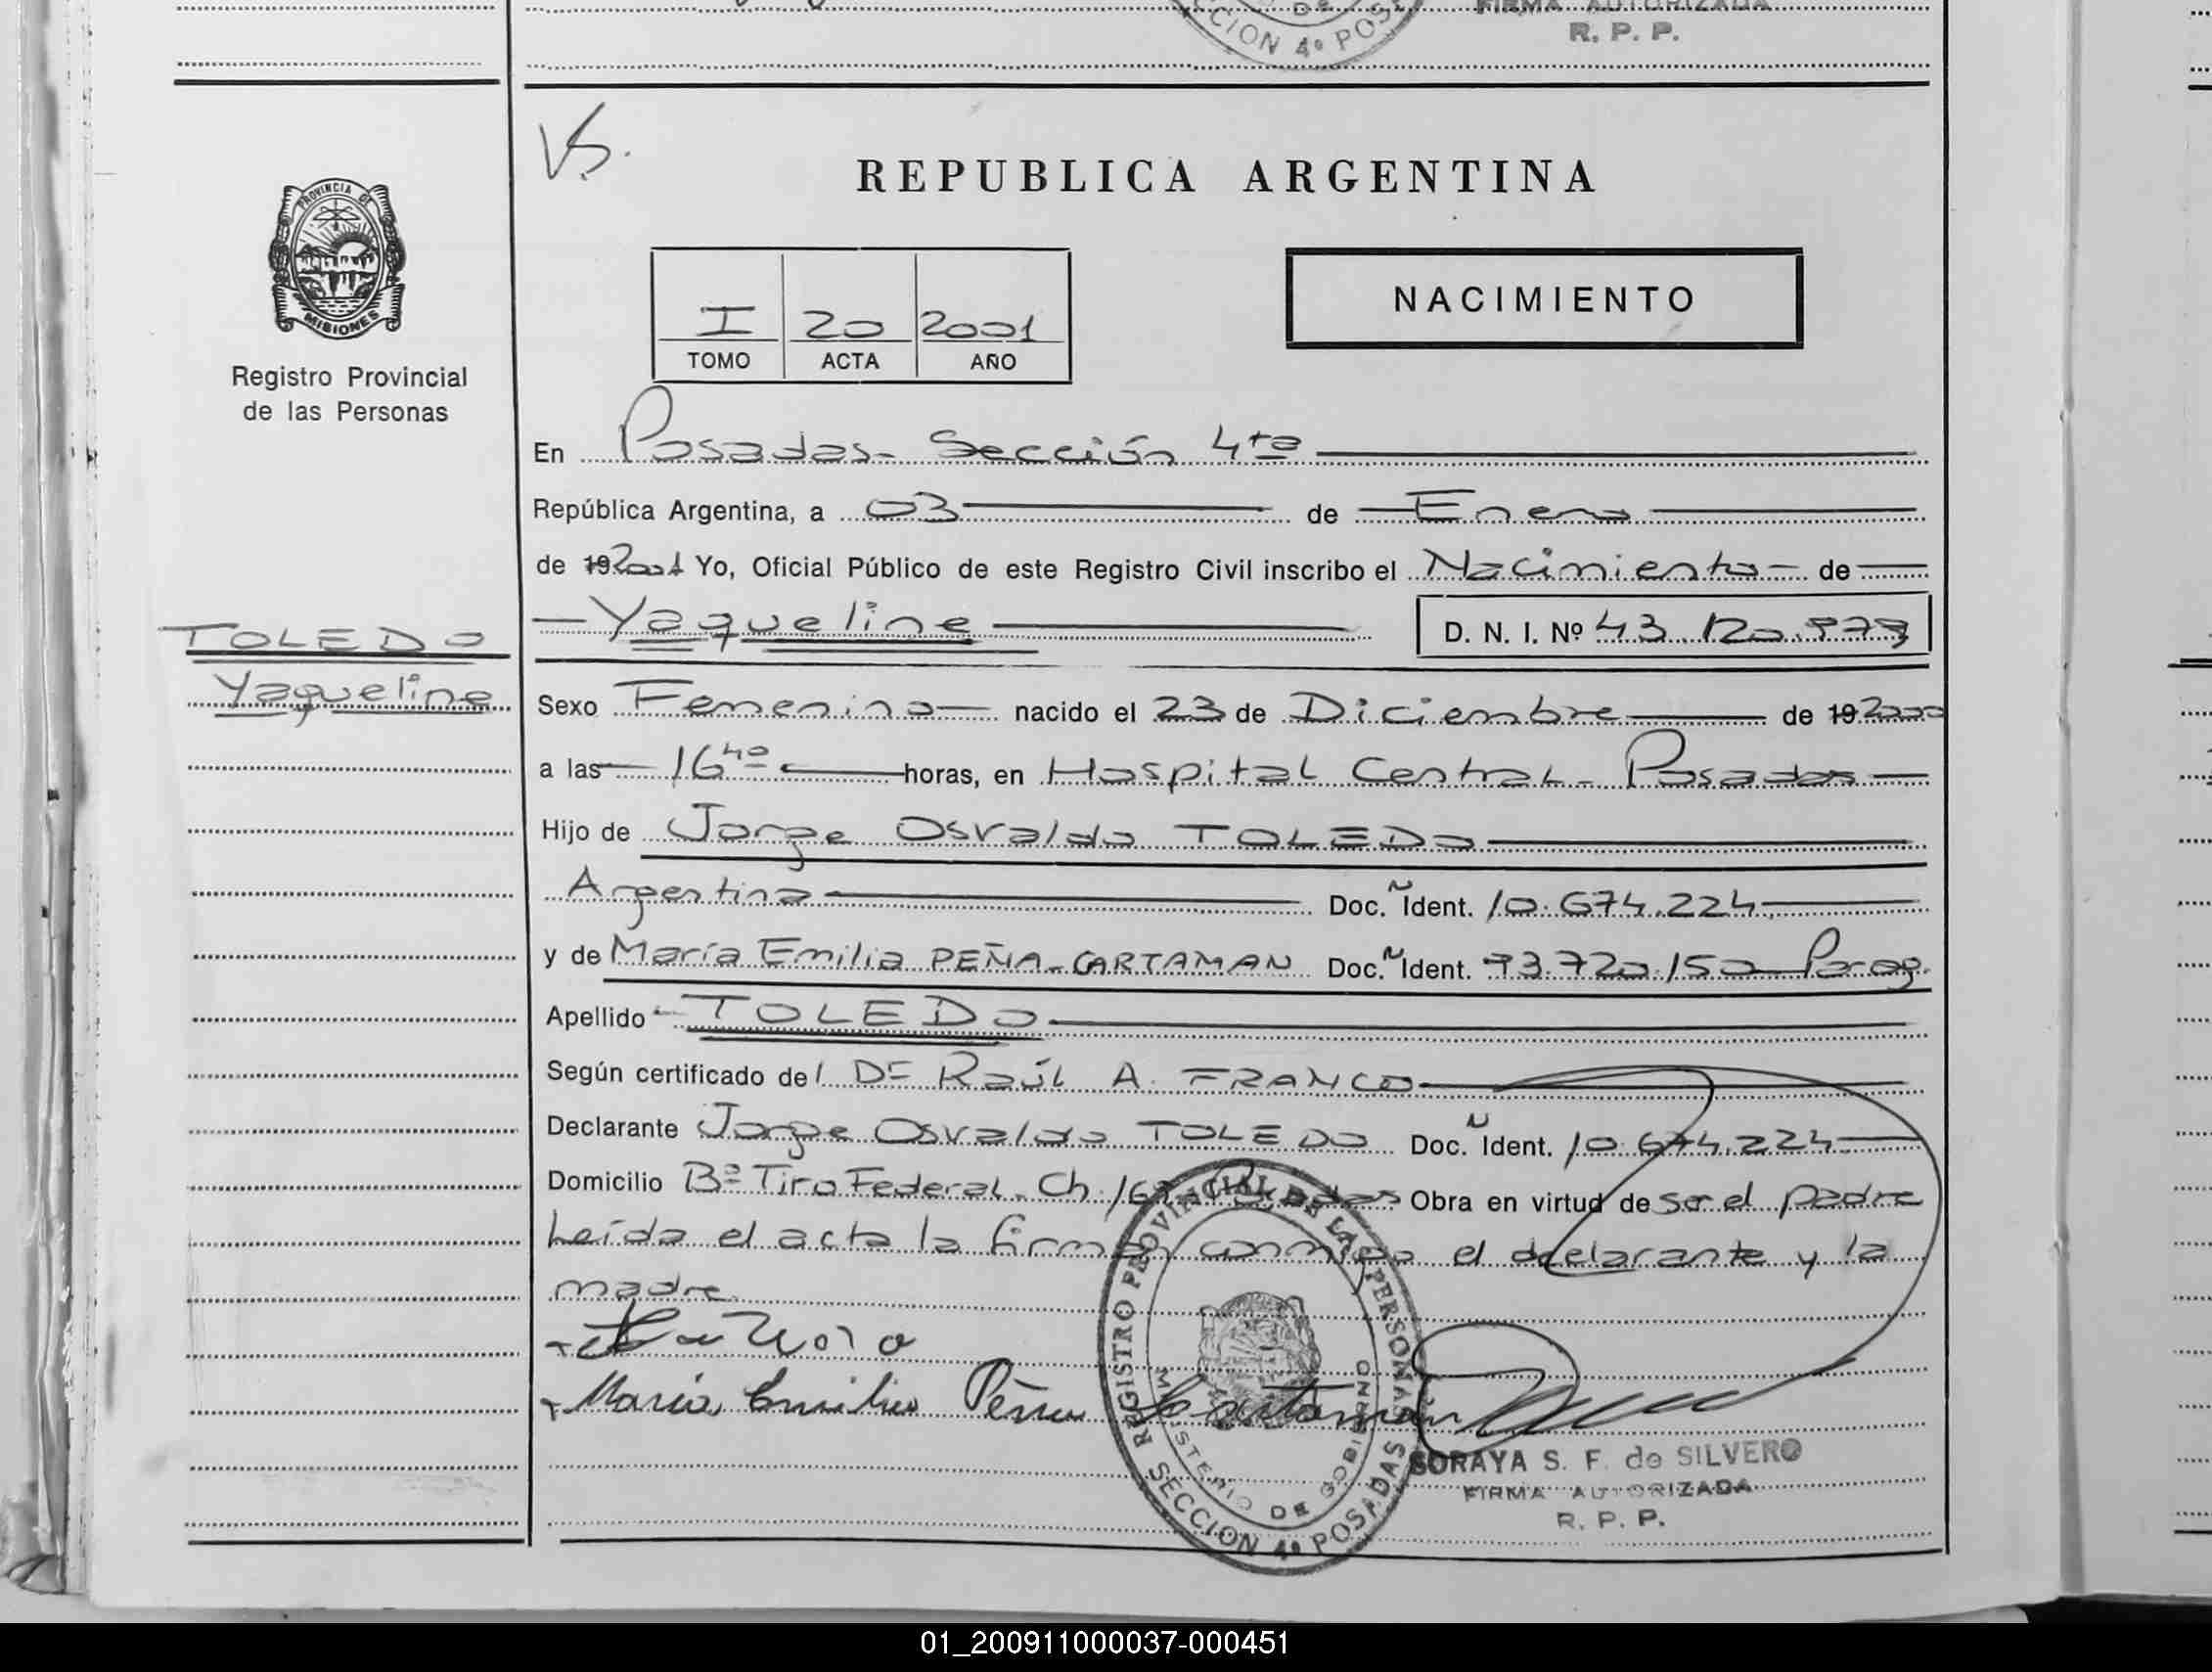 CCION 4º POSA
FIRMA AUTORIZADA
R. P. P.
VS.
PROVINCIA DE
MISIONES
Registro Provincial
de las Personas
REPUBLICA ARGENTINA
I 20 2001
TOMO ACTA AÑO
NACIMIENTO
En Posadas - Sección 4ta
República Argentina, a 03 de Enero
de 19 2001 Yo, Oficial Público de este Registro Civil inscribo el Nacimiento de
Yaqueline D. N. I. Nº 43.120.979
TOLEDO
Yaqueline
Sexo Femenino nacido el 23 de Diciembre de 19 2000
a las 16 40 horas, en Hospital Central - Posadas
Hijo de Jorge Osvaldo TOLEDO
Argentina Doc. Ident. 10.674.224
y de María Emilia PEÑA-CARTAMAN Doc. Ident. 93.720.150 Parag.
Apellido TOLEDO
Según certificado del Dr Raúl A. FRANCO
Declarante Jorge Osvaldo TOLEDO Doc. Ident. 10.674.224
Domicilio Bº Tiro Federal - Ch. Posadas Obra en virtud de ser el padre
Leída el acta la firman conmigo el declarante y la
madre.
María Emilia Peña Cartaman
REGISTRO PROVINCIAL DE LAS PERSONAS
MINISTERIO DE GOBIERNO
SECCION 4º POSADAS
SORAYA S. F. de SILVERO
FIRMA AUTORIZADA
R. P. P.
01_200911000037-000451